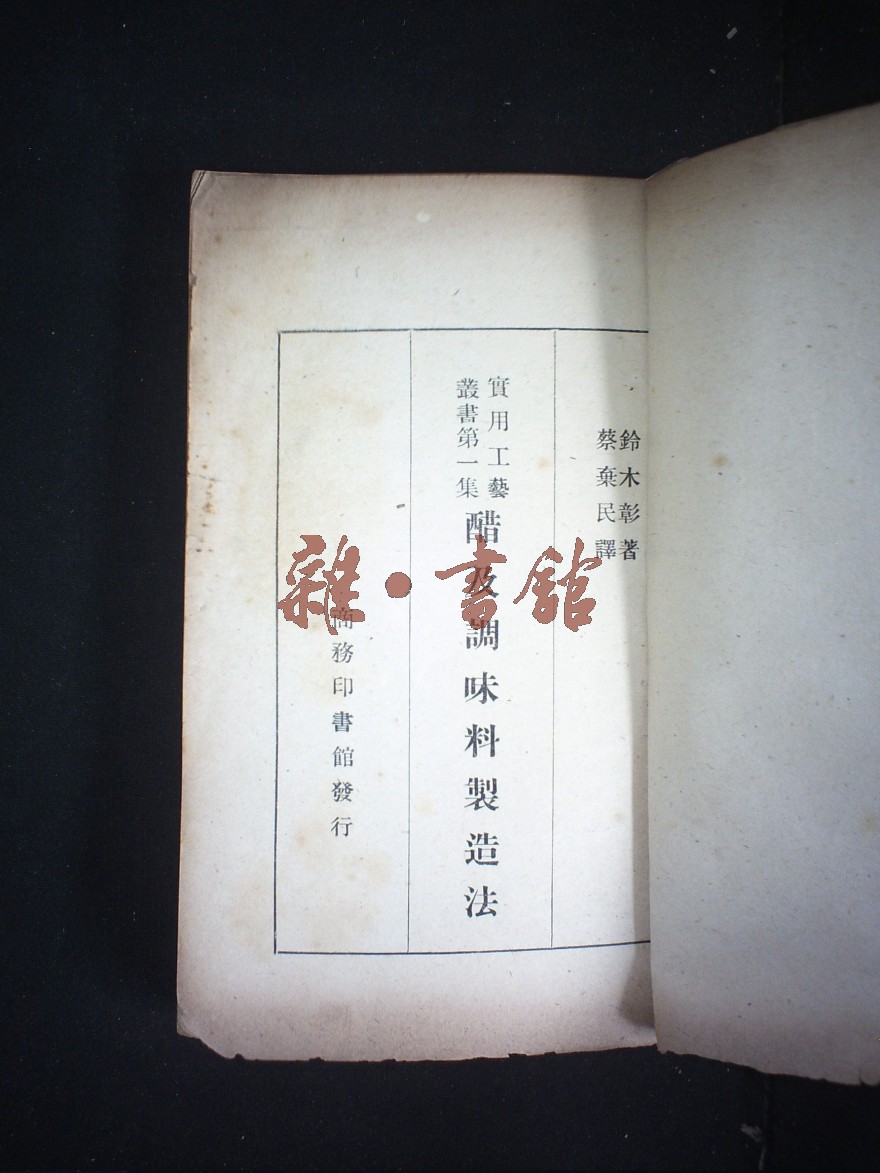 鈴木彰著
蔡棄民譯
實用工藝
叢書第一集
醋及調味料製造法
商務印書館發行
雜·書館